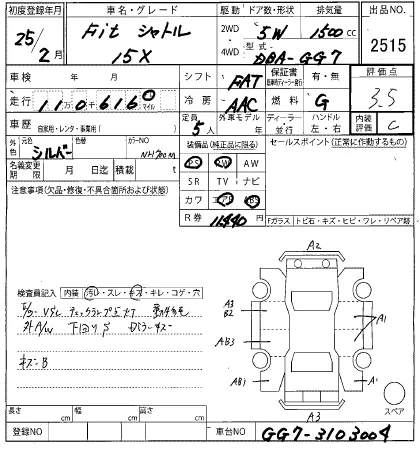 初度登録年月 車名・グレード 駆動 ドア数・形状 排気量 出品NO
25/2月 Fit シャトル 2WD 5W 1500cc 2515
15X 4WD 型式 DBA-GG7
車検 年 月 シフト FAT 保証書 有・無 評価点
走行 110千616 マイル 冷房 AAC 燃料 G 3.5
車歴 自家用・レンタ・事業用( ) 定員 5人 外車モデル年 ディーラー・並行 ハンドル 左・右 内装評価 C
外色 元色 シルバー 色替 カラーNO NH700M 装備品(純正品に限る) セールスポイント(正常に作動するもの)
名義変更期限 月 日迄 積載 t PS PW AW
SR TV ナビ
注意事項(欠品・修復・不具合箇所および状態) カワ エアB ABS
R券 11440円
Fガラス トビ石・キズ・ヒビ・ワレ・リペア跡
A2
検査員記入 内装 汚レ・スレ・キズ・キレ・コゲ・穴
A3
B2
A1
外A/W 下回りS
AB3
キズB
AB1
A1
A3
スペア
長さ cm 幅 cm 高さ cm
登録NO 車台NO GG7-3103004